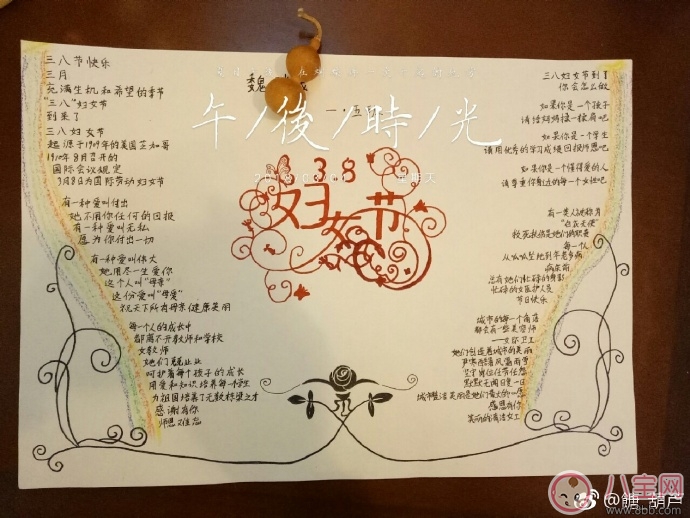 三八节快乐
三月
充满生机和希望的季节
"三八"妇女节
到来了
三八妇女节
起源于1909年的美国芝加哥
1910年8月召开的
国际会议规定
3月8日为国际劳动妇女节
有一种爱叫付出
她不用你任何的回报
有一种爱叫无私
愿为你付出一切
有一种爱叫伟大
她用尽一生爱你
这个人叫"母亲"
这份爱叫"母爱"
祝天下所有母亲健康美丽
每个人的成长中
都离不开教师和学校
女教师
她们兢兢业业
呵护着每个孩子的成长
用爱和知识培养每个学生
为祖国培养了无数栋梁之才
感谢有你
师恩难忘
魏
一·五
午/後/時/光
星期三
38
妇女节
三八妇女节到了
你会怎么做
如果你是一个孩子
请给妈妈揉一揉肩吧
如果你是一个学生
请用优秀的学习成绩回报师恩吧
如果你是一个懂得爱的人
请尊重你身边的每一个女性吧
有一类人被称为
"白衣天使"
救死扶伤是她们的职责
每一个人
从呱呱坠地到年老多病
病床前
总有她们忙碌的身影
忙碌的女医护人员
节日快乐
城市的每一个角落
都会有一些美容师
她们创造着城市的美丽
严寒酷暑风霜雨雪
坚守岗位任劳任怨
默默无闻日复一日
城市整洁美丽是她们最大的心愿
感恩有你
美丽的清洁女工
八宝网
www.8bb.com
@糖_葫芦